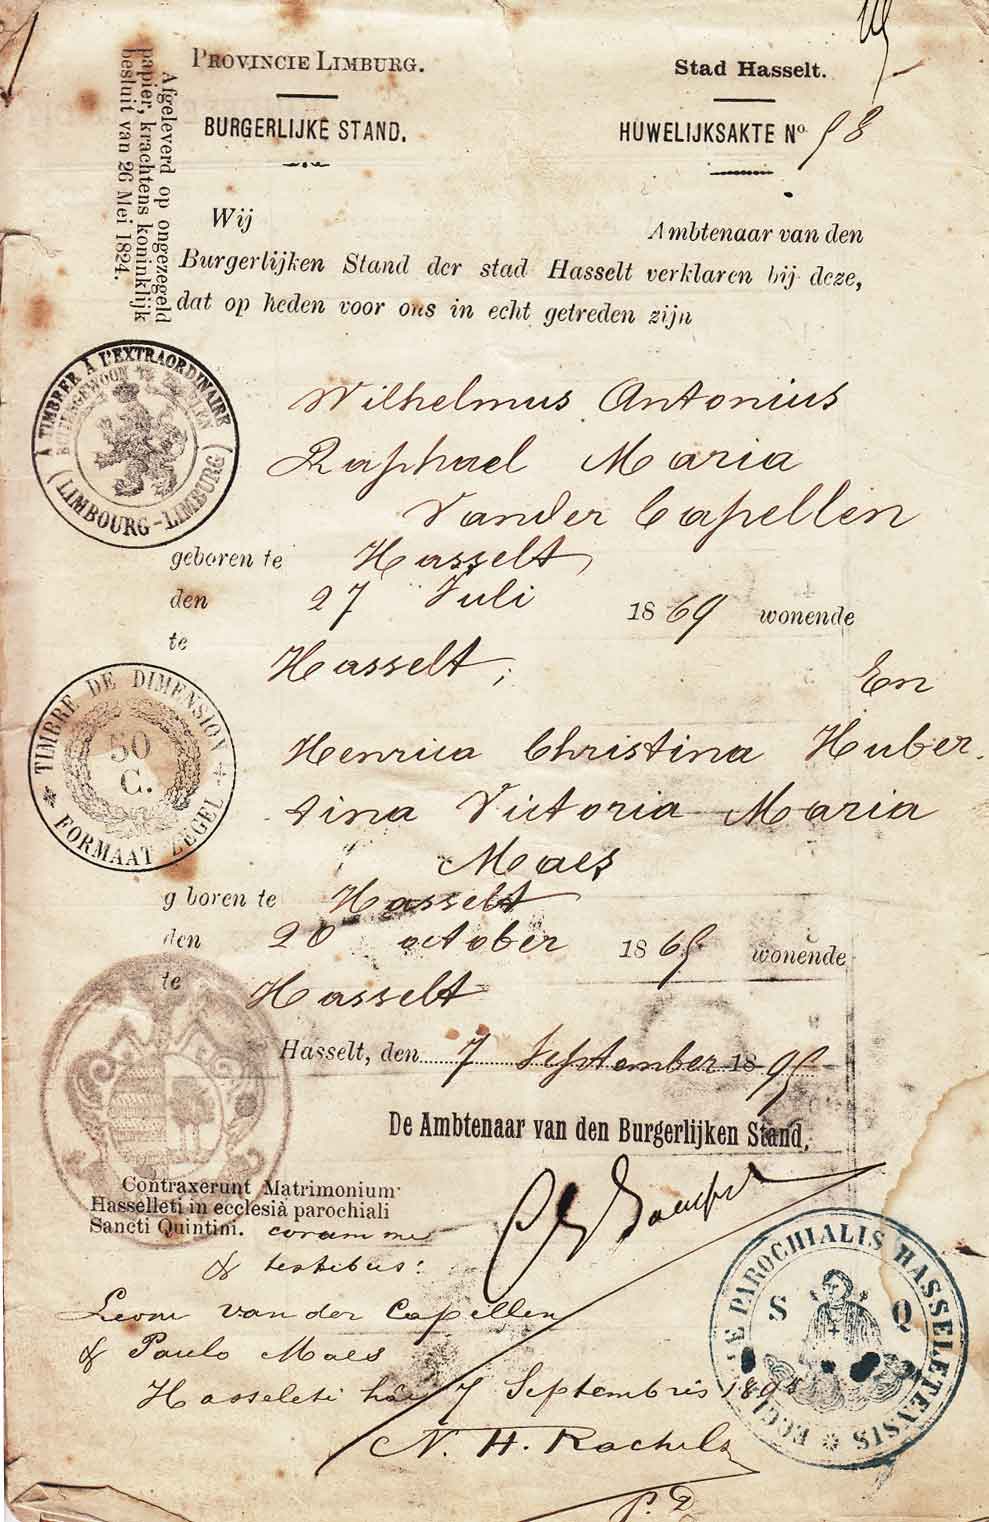 PROVINCIE LIMBURG.
BURGERLIJKE STAND.
Stad Hasselt.
HUWELIJKSAKTE Nº 98
Afgeleverd op ongezegeld
papier, krachtens koninklijk
besluit van 26 Mei 1824.
Wij Ambtenaar van den
Burgerlijken Stand der stad Hasselt verklaren bij deze,
dat op heden voor ons in echt getreden zijn
À TIMBRER À L'EXTRAORDINAIRE
(LIMBOURG-LIMBURG)
Wilhelmus Antonius
Raphael Maria
Vander Capellen
geboren te Hasselt
den 27 Juli 1869 wonende
te
Hasselt;
En
TIMBRE DE DIMENSION
50
C.
* FORMAAT ZEGEL *
Henrica Christina Huber
tina Victoria Maria
Maes
g boren te Hasselt
den 20 october 1869 wonende
te Hasselt
Hasselt, den 7 September 1895
De Ambtenaar van den Burgerlijken Stand.
Contraxerunt Matrimonium
Hasseleti in ecclesiâ parochiali
Sancti Quintini. coram me
& testibus:
Leone van der Capellen
& Paulo Maes
Hasseleti hâc 7 Septembris 1895
N. H. Rachels
p. d.
PAROCHIALIS HASSELETENSIS
S Q